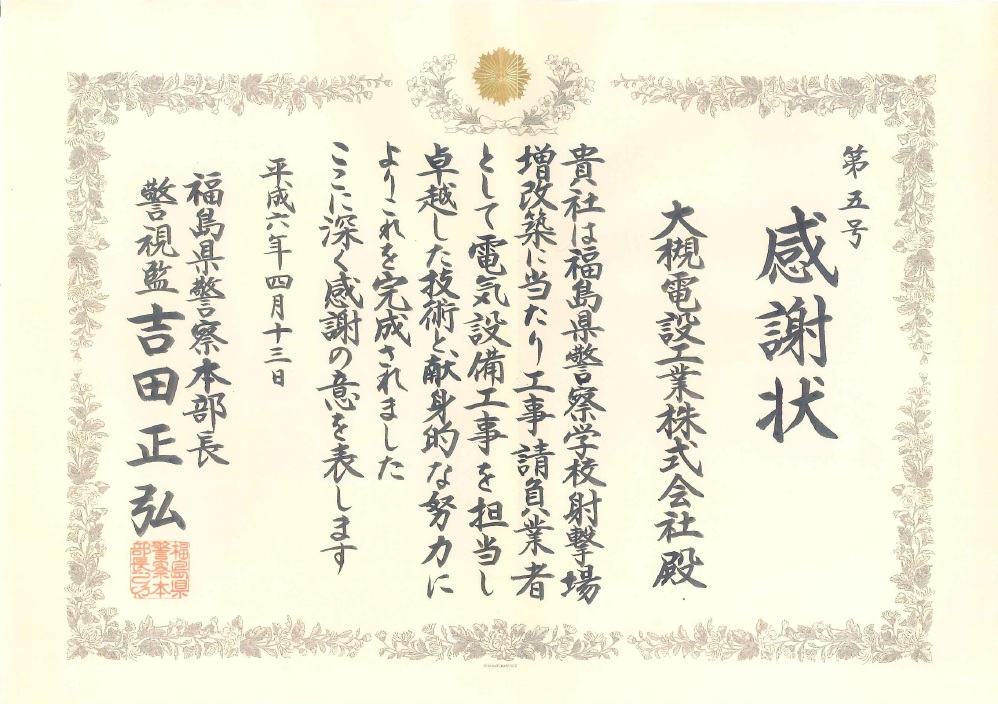 第五号
感謝状
大槻電設工業株式会社殿
貴社は福島県警察学校射撃場
増改築に当たり工事請負業者
として電気設備工事を担当し
卓越した技術と献身的な努力に
よりこれを完成されました
ここに深く感謝の意を表します
平成六年四月十三日
福島県警察本部長
警視監吉田正弘
福島県
警察本
部長之印